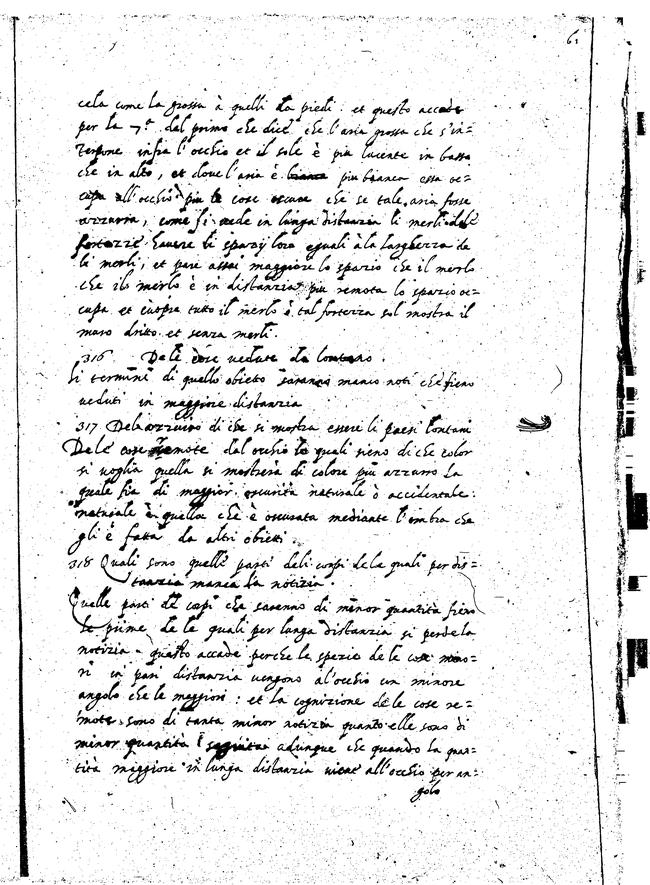 61
cela come la grossa à quelli da piedi. et questo accade
per la 7.ª del primo che dice. che l'aria grossa che s'in=
terpone infra l'occhio et il sole è piu lucente in basso
che in alto, et doue l'aria è bianca piu bianca essa oc=
cupa all'occhio piu le cose oscure che se tale aria fosse
azzurra, come si uede in lunga distanzia li merli dele
fortezze hauere li spazij loro equali à la larghezza de
li merli, et pare assai maggiore lo spazio che il merlo
che ilo merlo è in distanzia piu remota lo spazio oc=
cupa et cuopre tutto il merlo è tal fortezza sol mostra il
muro dritto et senza merli.
316 Dele cose uedute da lontano.
li termini di quello obieto saranno manco noti che fieno
ueduti in maggiore distanzia
317 Del azzurro di che si mostra essere li paesi lontani
Dele cose remote dal occhio le quali sieno di che color
si uoglia quella si mostrerà di colore piu azzurro la
quale fia di maggior oscurità naturale ò accidentale:
naturale è quella chè è oscurata mediante l'ombra che
gli è fatta da altri obietti
318 Quali sono quelle parti deli corpi de la quali per dis=
tanzia manca la notizia.
Quelle parti de corpi che saranno di minor quantità fieno
le prime de le quali per lunga distanzia si perde la
notizia. questo accade perche le spezie de le cose mino=
ri in pari distanzia uengono a l'occhio con minore
angolo che le maggiori: et la cognizione de le cose re=
mote sono di tanta minor notizia quanto elle sono di
minor quantità seguita adunque che quando la quan=
tità maggiore in lunga distanzia uiene all'occhio per an=
golo